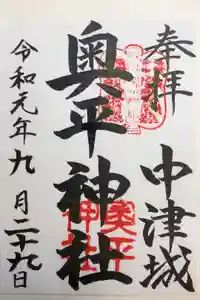 奉拝
中津城
奥平神社
奥平
神社
令和元年九月二十九日